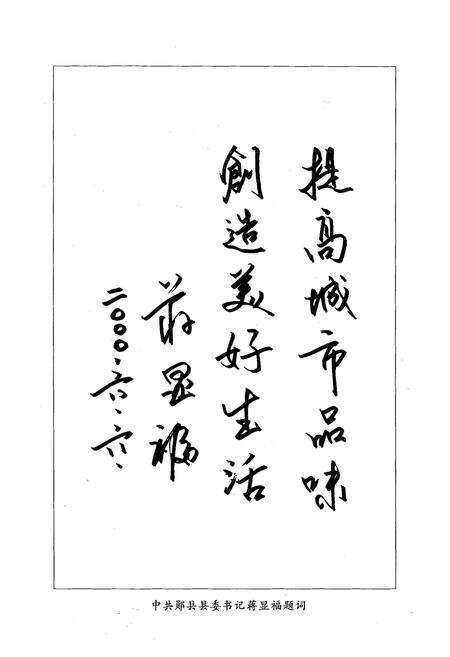 提高城市品味
創造美好生活
蒋显福
二〇〇〇·六·六·
中共郧县县委书记蒋显福题词